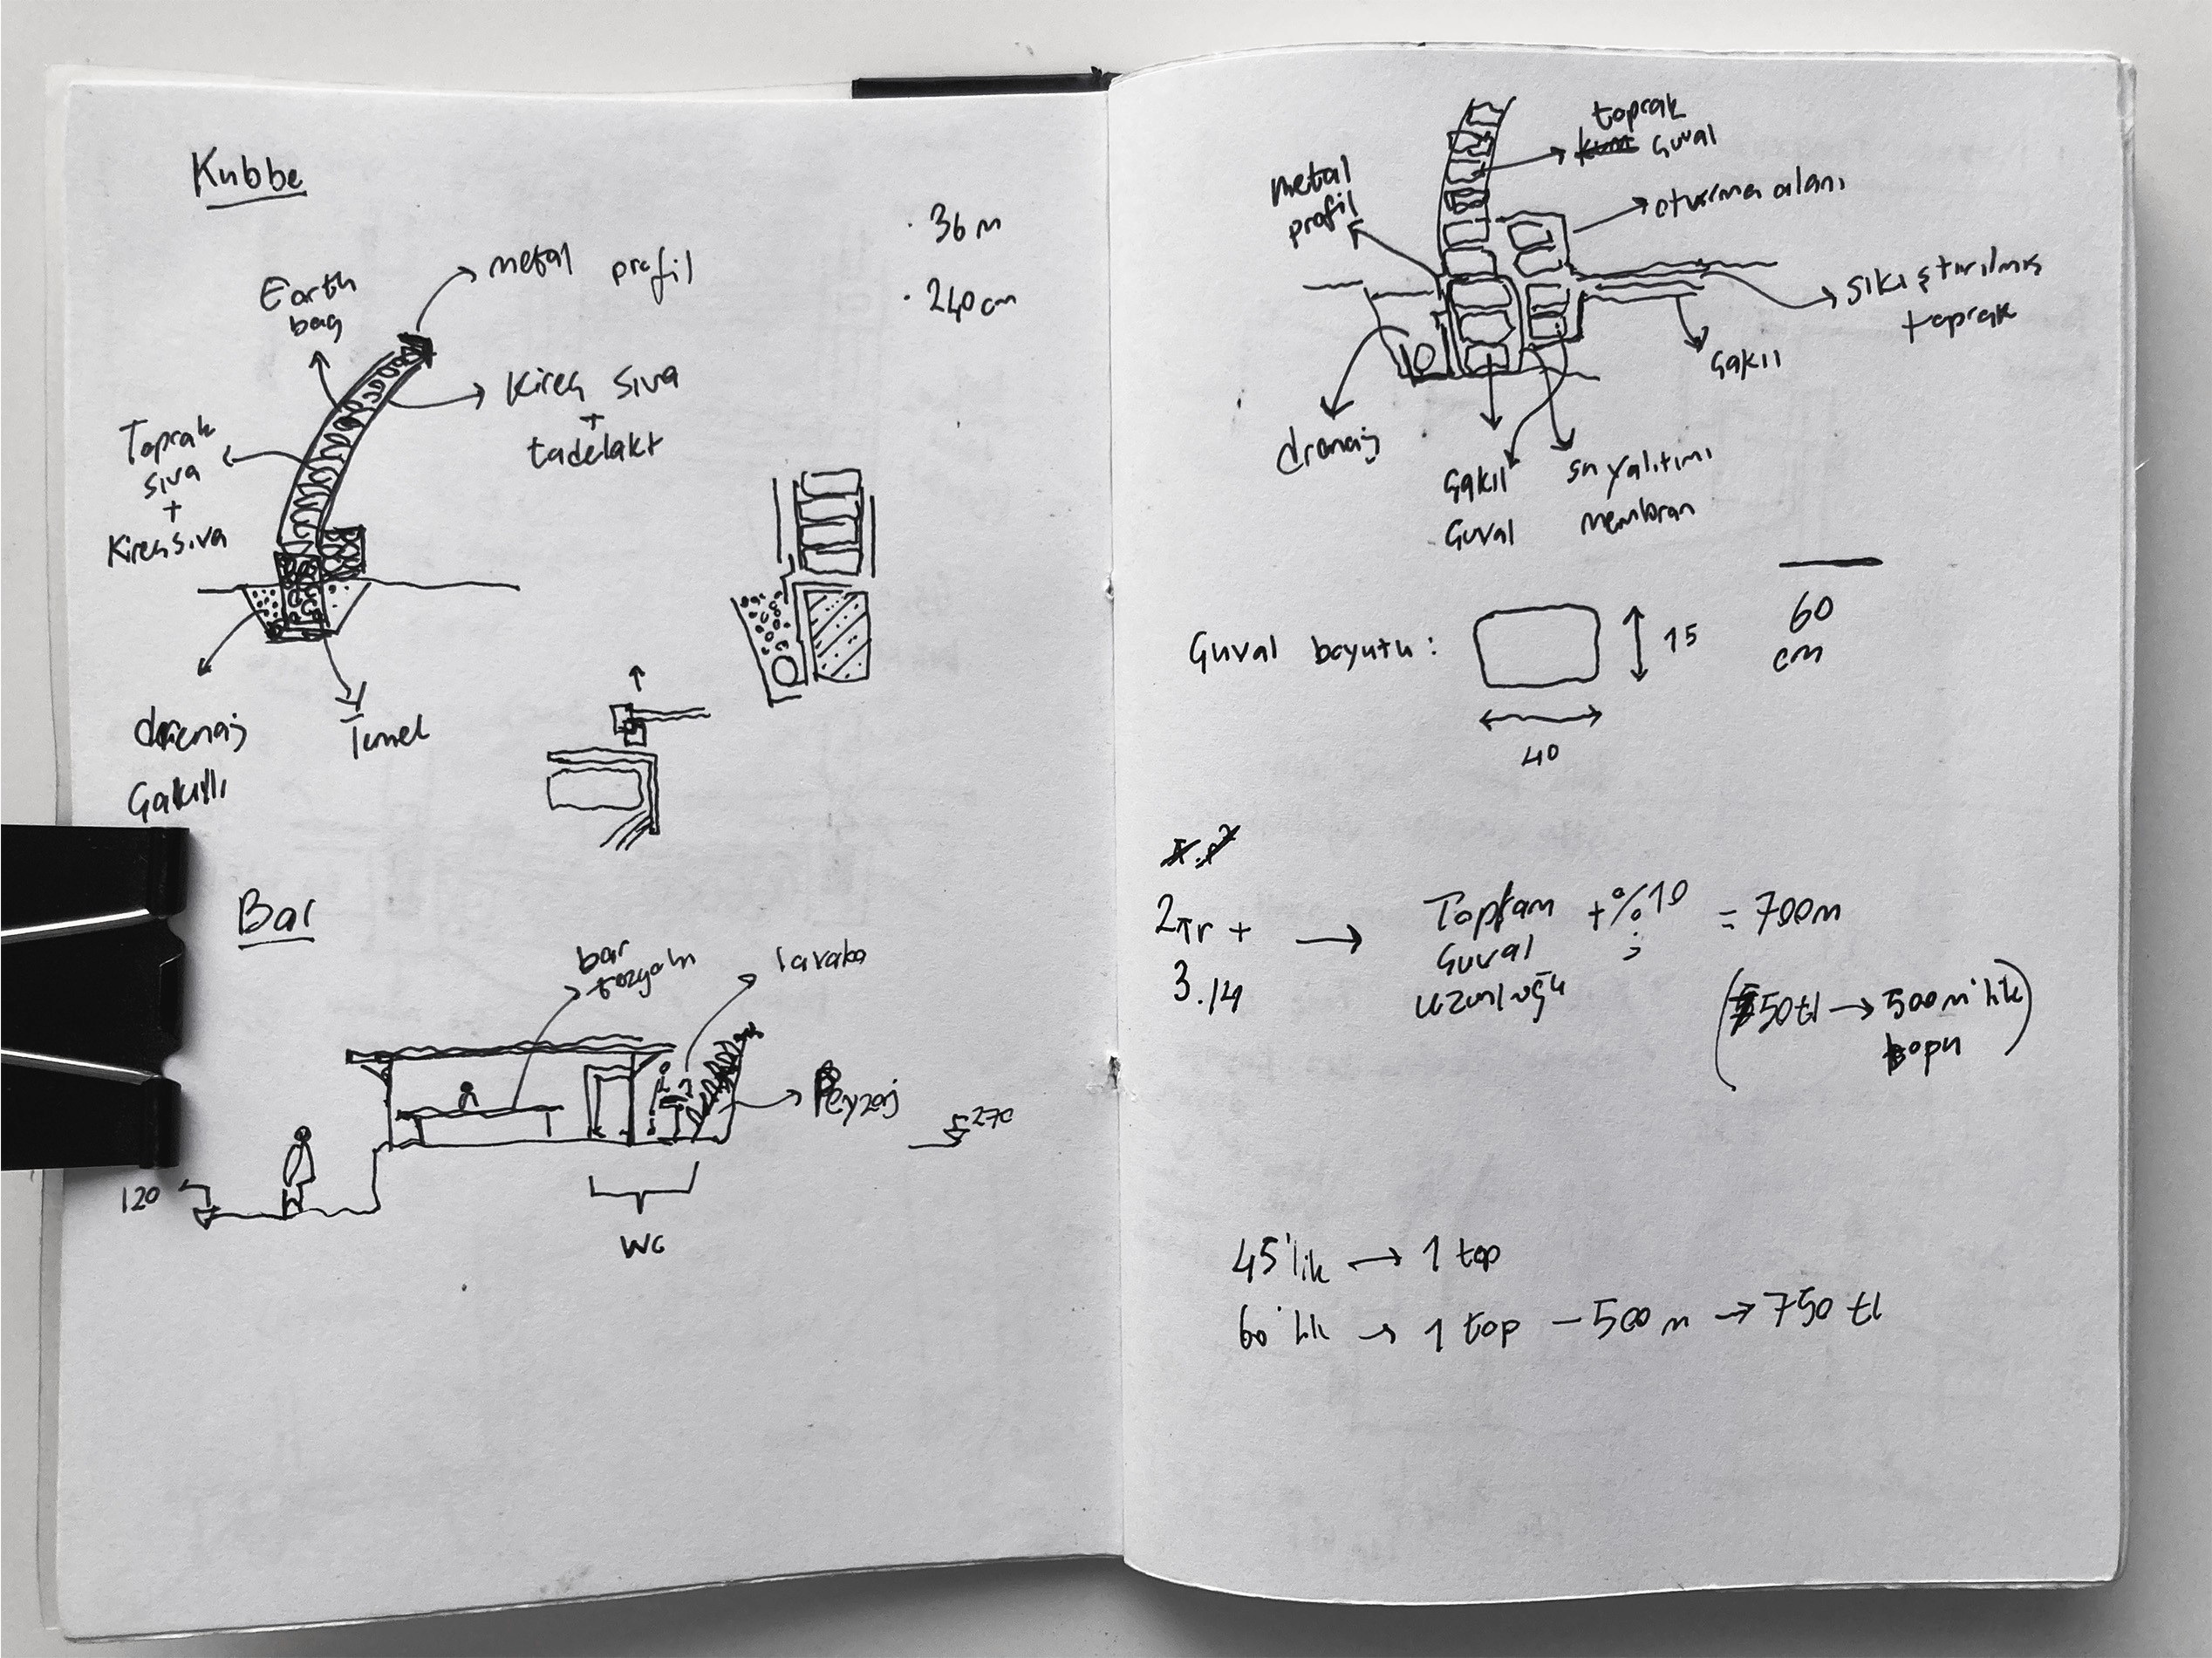 Kubbe
· 36 m
· 240 cm
metal profil
Earth
bag
Kireç sıva
+
tadelakt
Toprak
sıva
+
Kireç sıva
drenaj
Çakıllı
Temel
Bar
bar
tezgahı
lavabo
Peyzaj
270
120
WC
toprak
kum çuval
metal
profil
oturma alanı
sıkıştırılmış
toprak
çakıl
drenaj
çakıl
çuval
su yalıtımı
membran
Çuval boyutu :
15
40
60
cm
π.r²
2πr +
3.14
→
Toplam
çuval
uzunluğu
+%10
= 700m
(550tl → 500m'lik
topu)
45'lik → 1 top
60'lık → 1 top – 500 m → 750 tl